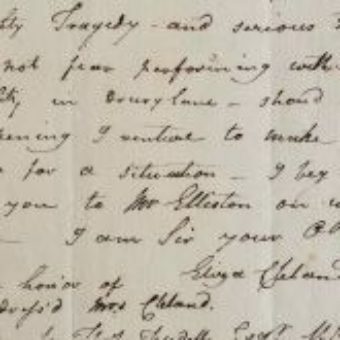 Tragedy - and serious
not fear performing with
in Drury lane - should
I venture to make
for a situation - I beg
you to Mr Elliston on
I am Sir your
Eliza Cleland
honor of
Mrs Cleland.
Esqr